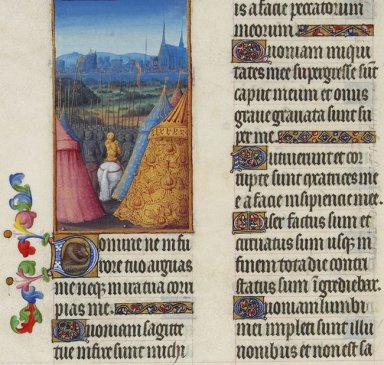 Domine ne in fu
rore tuo arguas
me neq; in ira tua corri
pias me.
Quoniam sagitte
tue infixe sunt michi
is a facie peccatorum
meorum.
Quoniam iniqui
tates mee supergresse sūt
caput meum et onus
graue grauata sunt su
per me.
Putruerunt et cor
rupte sunt cicatrices me
e a facie insipiencie mee.
Miser factus sum et
curuatus sum usq; in
finem tota die contri
status sum ingrediebar.
Quoniam lumbi
mei impleti sunt illu
sionibus et non est sa